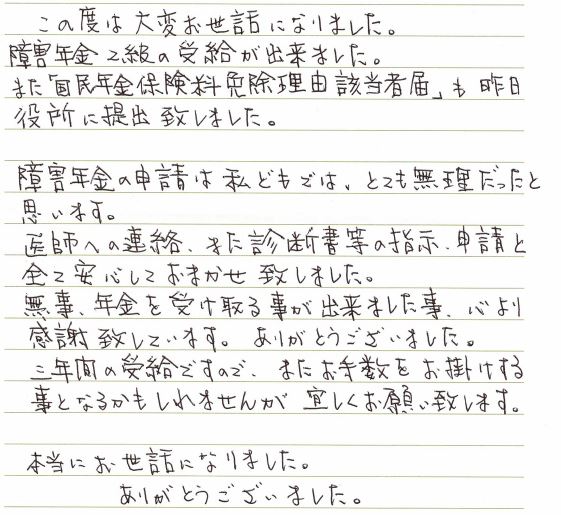 この度は大変お世話になりました。
障害年金2級の受給が出来ました。
また「国民年金保険料免除理由該当者届」も昨日
役所に提出致しました。
障害年金の申請は私どもでは、とても無理だったと
思います。
医師への連絡、また診断書等の指示、申請と
全て安心しておまかせ致しました。
無事、年金を受け取る事が出来ました事、心より
感謝致しています。ありがとうございました。
三年間の受給ですので、またお手数をお掛けする
事となるかもしれませんが宜しくお願い致します。
本当にお世話になりました。
ありがとうございました。